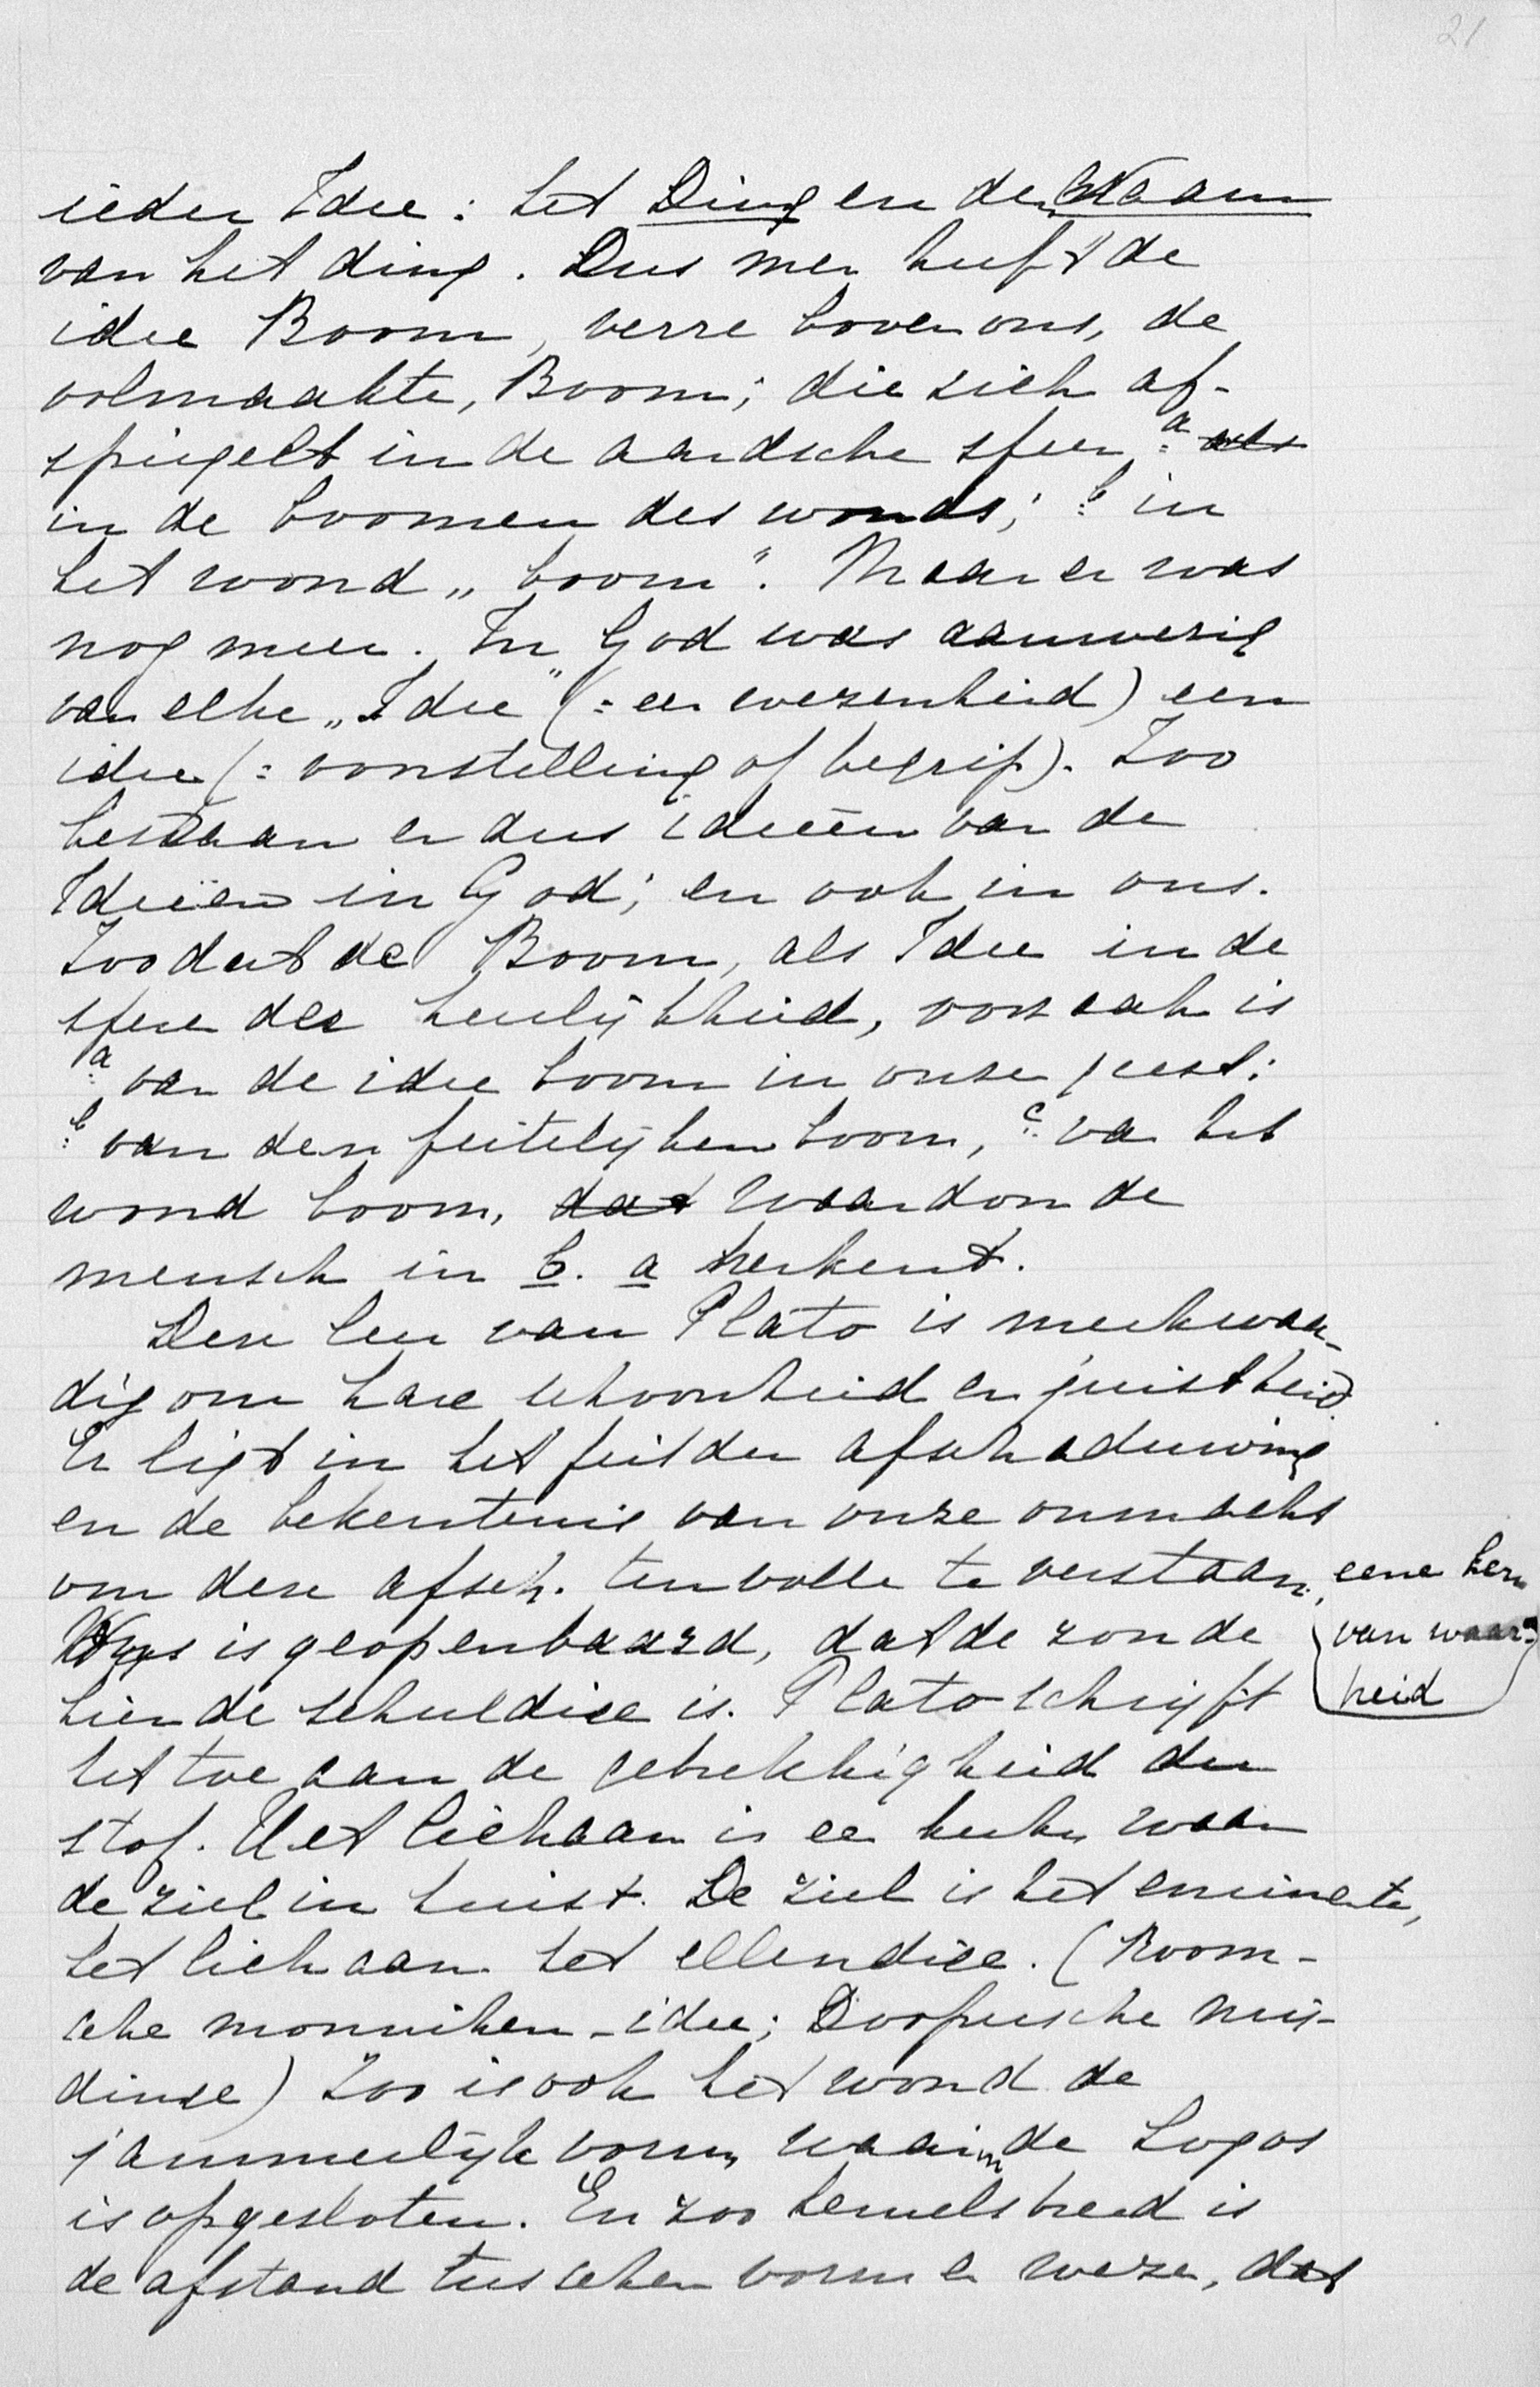 21
ieder Idee: het Ding en den Naam
van het ding. Dus men heeft de
idee Boom, verre boven ons, de
volmaakte, Boom; die zich af-
spiegelt in de aardsche sfeer, a: als
in de boomen des wouds; b: in
het woord „boom". Maar er was
nog meer. In God was aanwezig
van elke „Idee" (= een wezenheid) een
idee (= voorstelling of begrip). Zoo
bestaan er dus ideeën van de
Ideeën in God; en ook in ons.
Zoodat de Boom, als Idee in de
sfeer der heerlijkheid, oorzaak is
a: van de idee boom in onze geest;
b: van den feitelijken boom, c: van het
woord boom, dat waardoor de
mensch in b. a herkent.
Deze leer van Plato is merkwaar-
dig om hare schoonheid en juistheid.
Er ligt in het feit der afschaduwing
en de bekentenis van onze onmacht
om deze afsch. ten volle te verstaan, eene kern
van waar-
heid
Ons is geopenbaard, dat de zonde
hier de schuldige is. Plato schrijft
het toe aan de gebrekkigheid der
stof. Het lichaam is een kerker waar
de ziel in huist. De ziel is het eminente,
het lichaam het ellendige. (Room-
sche monniken-idee; Doopersche mij-
dinge) Zoo is ook het woord de
jammerlijke vorm waarin de Logos
is opgesloten. En zoo hemelsbreed is
de afstand tusschen vorm en wezen, dat